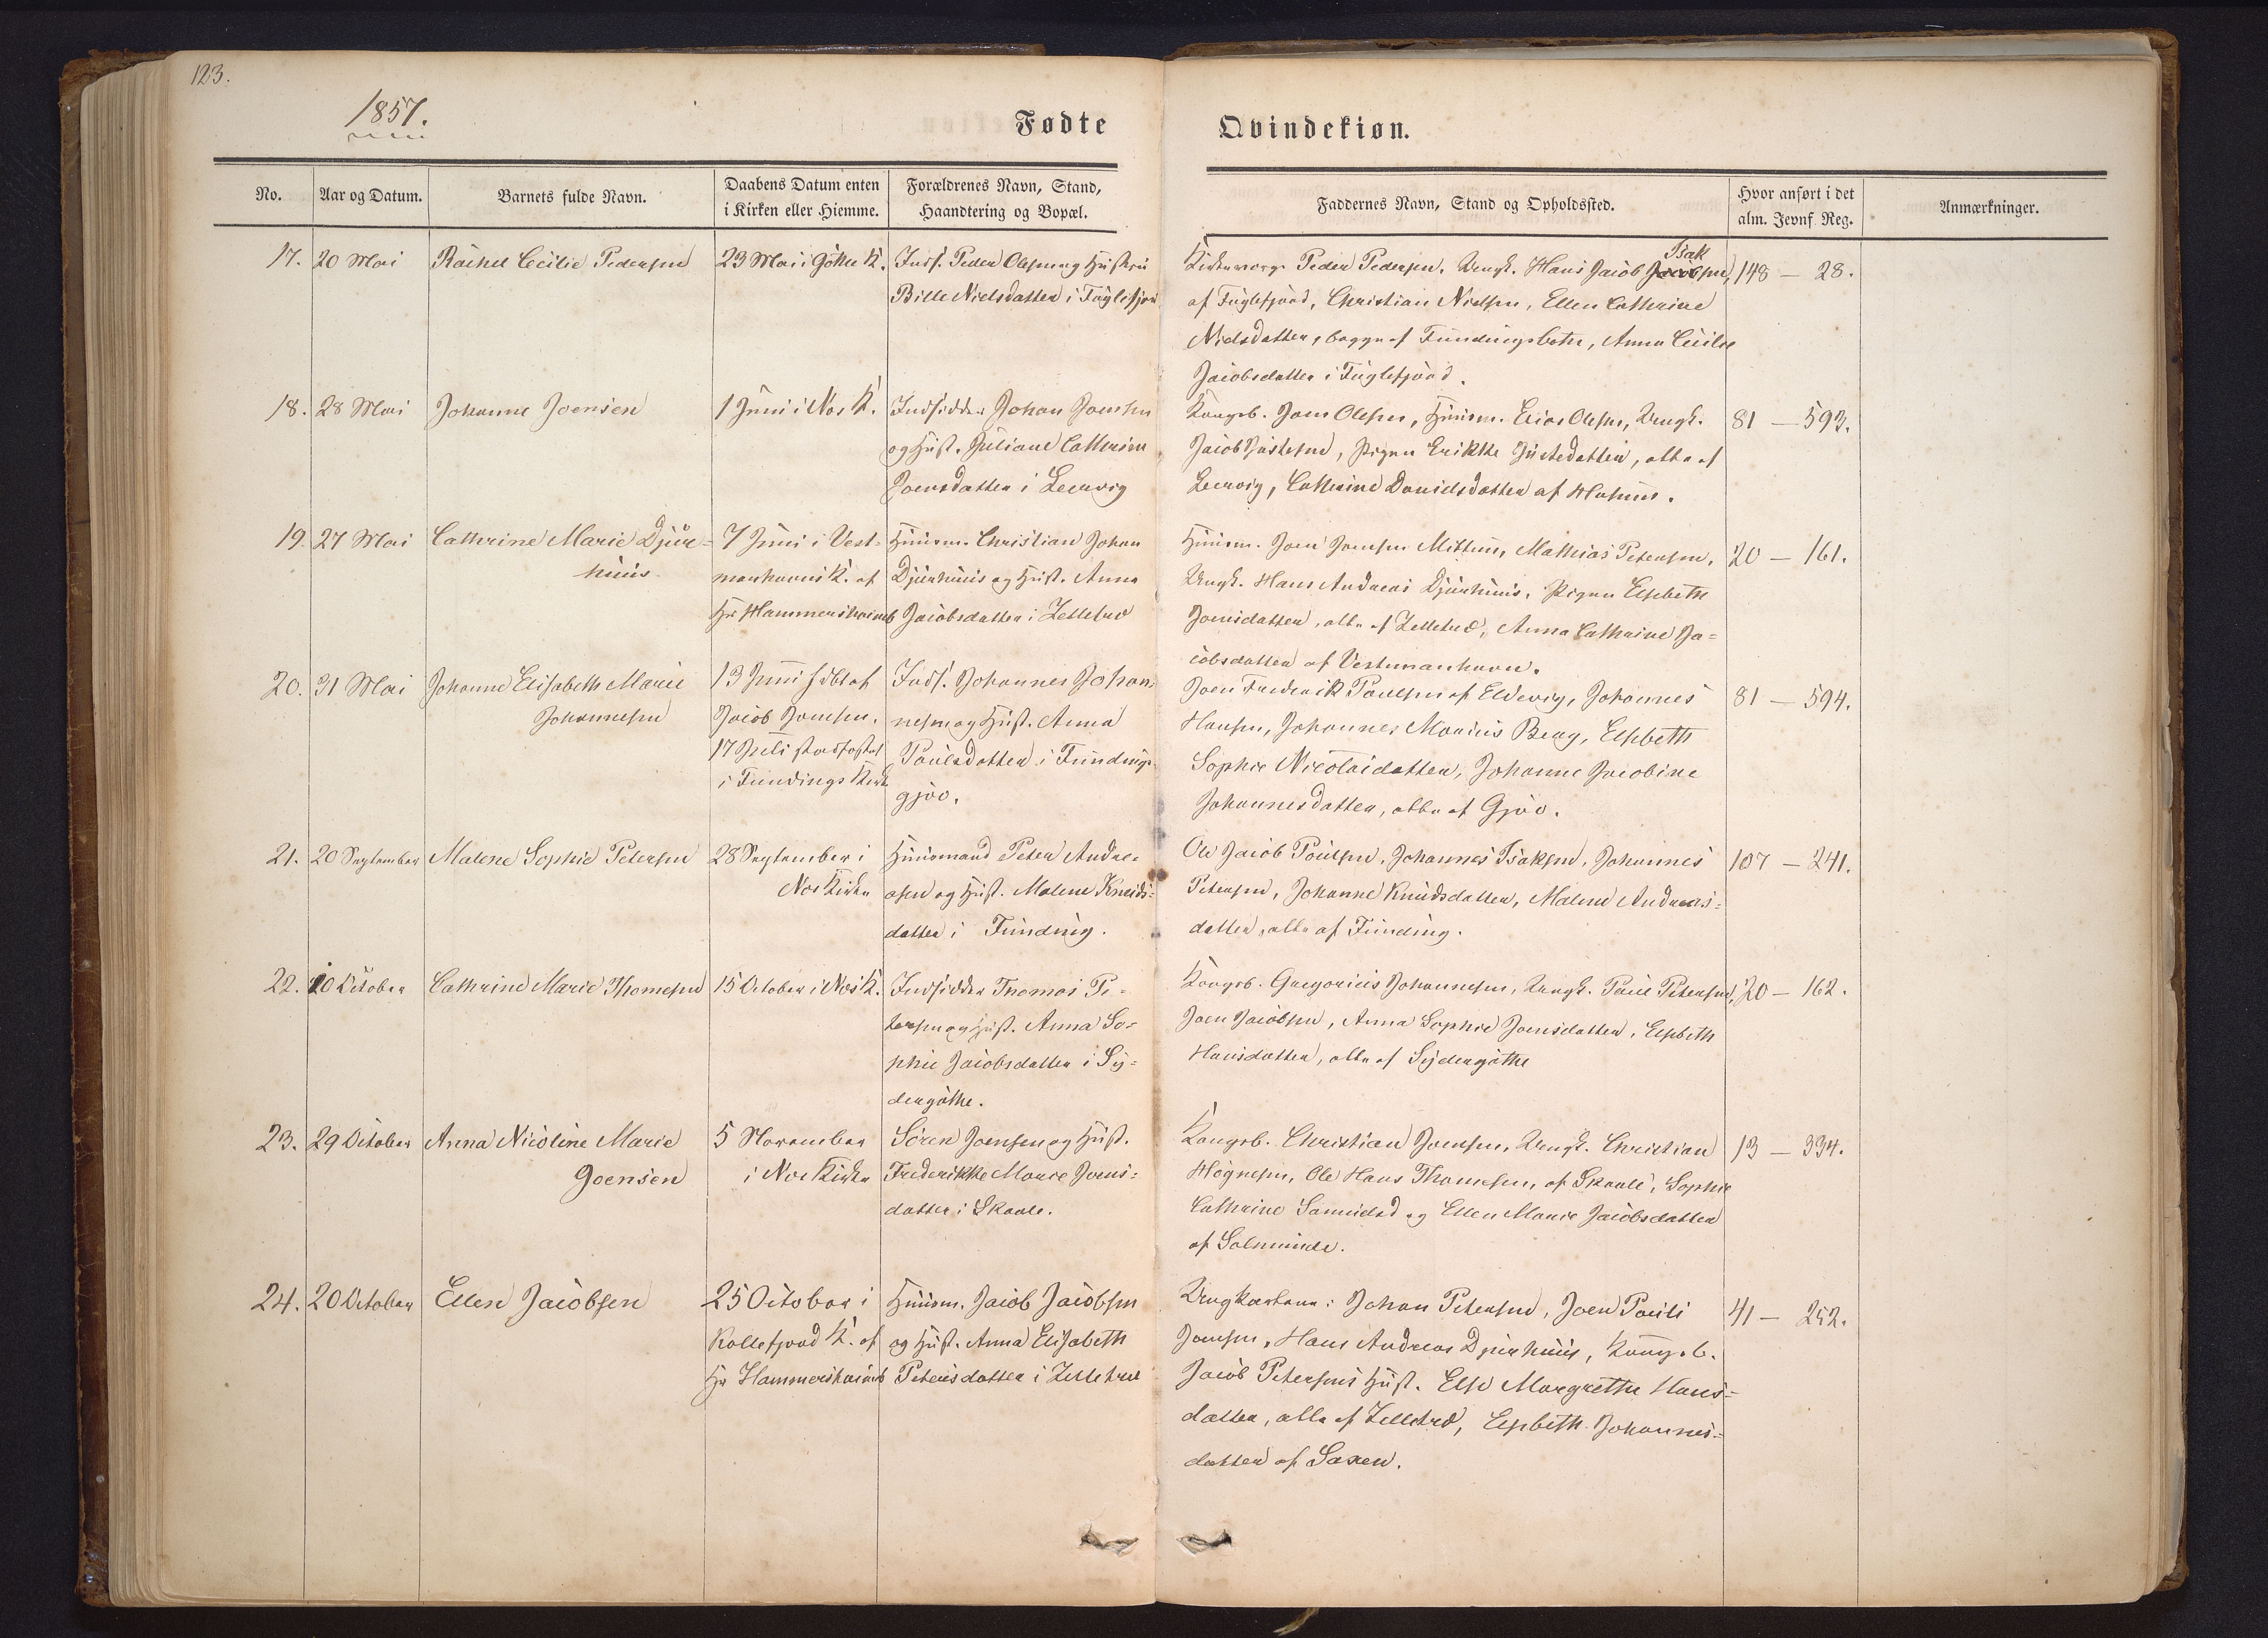 123.
1857.
Fødte
Qvindekiøn.
No.
Aar og Datum.
Barnets fulde Navn.
Daabens Datum enten
i Kirken eller Hiemme.
Forældrenes Navn, Stand,
Haandtering og Bopæl.
Faddernes Navn, Stand og Opholdssted.
Hvor anført i det
alm. Jevnf. Reg.
Anmærkninger.
17.
20 Mai
Rachel Cecilie Pedersen
23 Mai i Göthe K.
Inds. Peder Olesen og Hustru
Bille Nielsdatter i Fuglefjord
Isak
Kirkeværge Peder Pedersen, Ungk. Hans Jacob Jacobsen,
af Fuglefjord, Christian Nielsen, Ellen Cathrine
Nielsdatter, begge af Fundingsbotn, Anna Cecilie
Jacobsdatter i Fuglefjord.
148 — 28.
18.
28 Mai
Johanne Joensen
1 Juni i Nes K.
Indsidder Johan Joensen
og Hust. Juliane Cathrine
Joensdatter i Leervig
Kongsb. Joen Olesen, Huusm. Elias Olesen, Ungk.
Jacob Justesen, Pigen Erikke Justedatter, alle af
Leervig, Cathrine Danielsdatter af Husum.
81 — 593.
19.
27 Mai
Cathrine Marie Djur=
huus
7 Juni i Vest=
manhavns K. af
Hr Hammershaimb
Huusm. Christian Johan
Djurhuus og Hust. Anna
Jacobsdatter i Zelletræ
Huusm. Joen Joensen Mittun, Mathias Petersen,
Ungk. Hans Andreas Djurhuus, Pigen Elsbeth
Joensdatter, alle af Zelletræ, Anna Cathrine Ja=
cobsdatter af Vestmanhavn.
20 — 161.
20.
31 Mai
Johanne Elisabeth Marie
Johannesen
13 Juni döbt af
Jacob Joensen.
17 Juli stadfæstet
i Fundings Kirke
Inds. Johannes Johan=
nesen og Hust. Anna
Poulsdatter i Fundings=
gjov.
Joen Frederik Poulsen af Eldevig, Johannes
Hansen, Johannes Monius Berg, Elsbeth
Sophie Nicolaidatter, Johanne Jacobine
Johannesdatter, alle af Gjov.
81 — 594.
21.
20 September
Malene Sophie Petersen
28 September i
Nes Kirke
Huusmand Peter Andre=
asen og Hust. Malene Knuds=
datter i Funding.
Ole Jacob Poulsen, Johannes Isaksen, Johannes
Petersen, Johanne Knudsdatter, Malene Andreas=
datter, alle af Funding.
107 — 241.
22.
10 October
Cathrine Marie Thomesen
15 October i Nes K.
Indsidder Thomas Pe=
tersen og Hust. Anna So=
phie Jacobsdatter i Sy=
dergøthe.
Kongsb. Gregorius Johannesen, Ungk. Poul Petersen,
Joen Jacobsen, Anna Sophie Joensdatter, Elsbeth
Hansdatter, alle af Sydergøthe
20 — 162.
23.
29 October
Anna Nicoline Marie
Joensen
5 November
i Nes Kirke
Sören Joensen og Hust.
Frederikke Marie Joens=
datter i Skaale.
Kongsb. Christian Joensen, Ungk. Christian
Högnesen, Ole Hans Thomesen, af Skaale, Sophie
Cathrine Samuelsd og Ellen Marie Jacobsdatter
af Salmunde.
13 — 334.
24.
20 October
Ellen Jacobsen
25 October i
Kollefjord K. af
Hr Hammershaimb
Huusm. Jacob Jacobsen
og Hust. Anna Elisabeth
Petersdatter i Zelletræ
Ungkarlene: Johan Petersen, Joen Pauli
Joensen, Hans Andreas Djurhuus, Kongsb.
Jacob Petersens Hust. Else Margrethe Hans=
datter, alle af Zelletræ, Elsbeth Johannes=
datter af Saxen.
41 — 252.